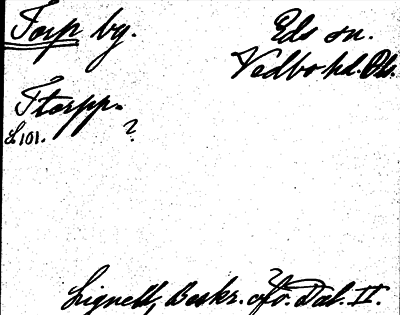 Torp bg.
Eds sn.
Vedbo hd. Dls.
Ttorpp.
L101. ?
Lignell, Beskr. öfv. Dal. II.